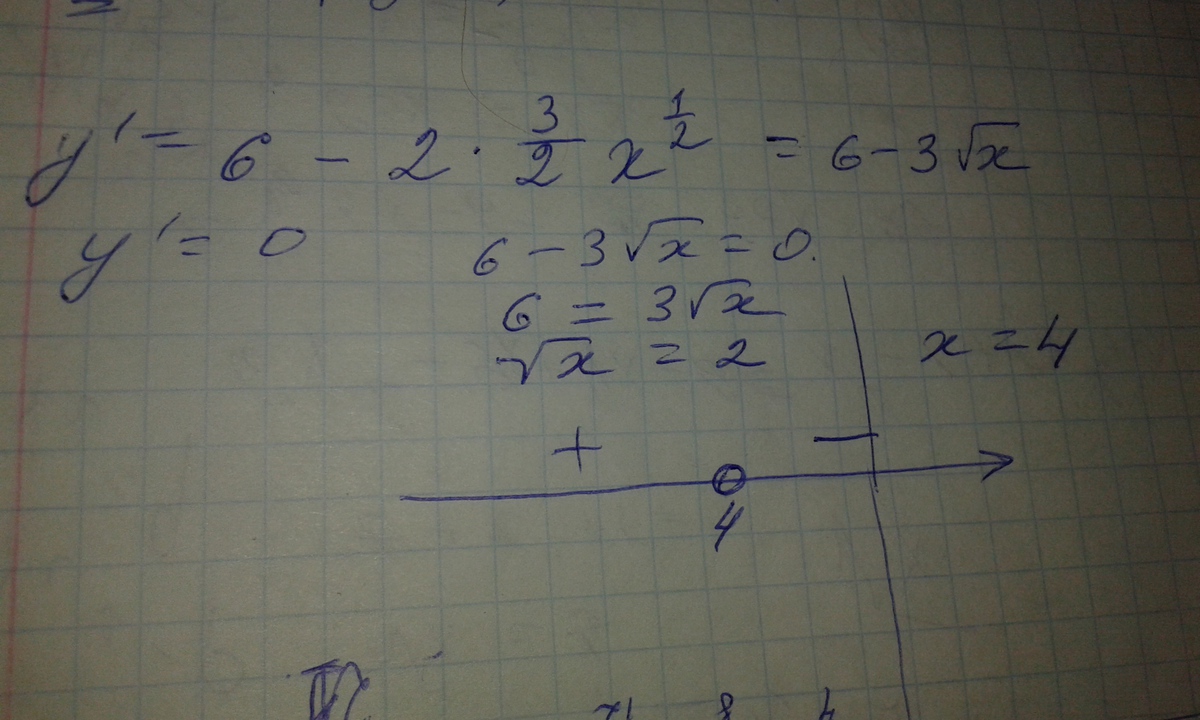 y' = 6 - 2 · 3/2 x^(1/2) = 6 - 3√x
y' = 0 6 - 3√x = 0.
6 = 3√x
√x = 2 x = 4
+ —
4